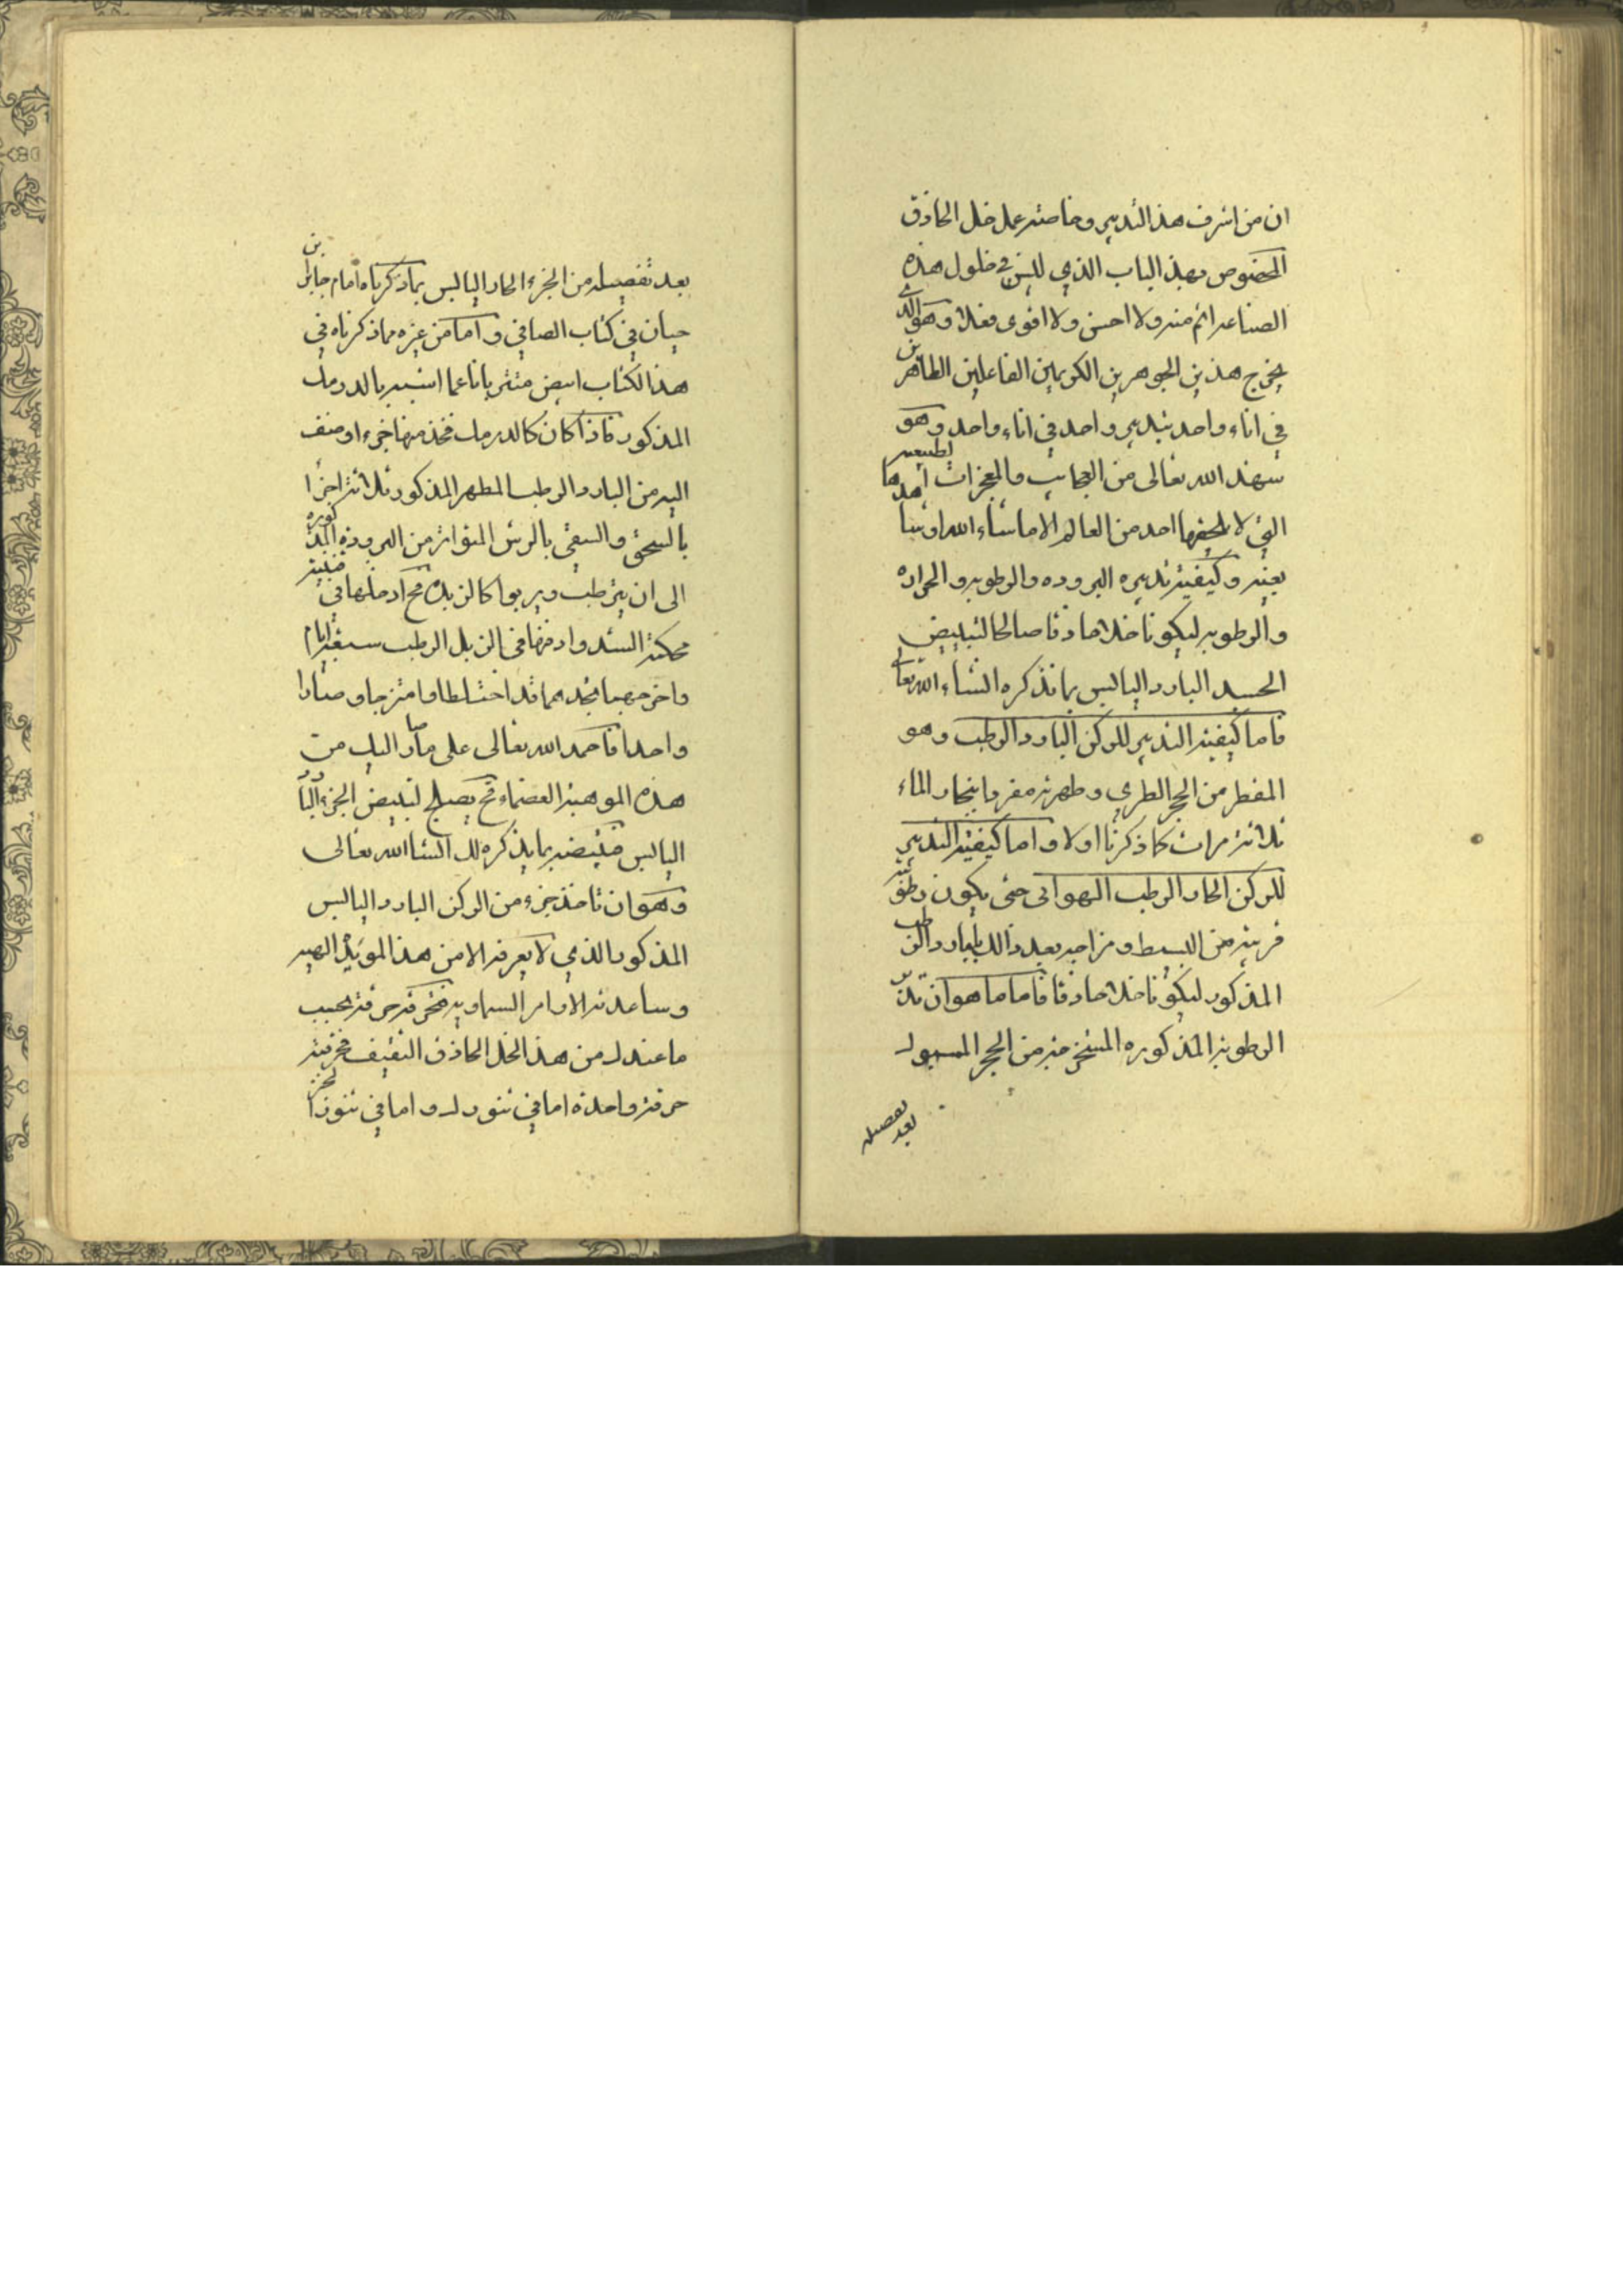 ان من اشرف هذا التدبير وخاصته عمل خل الحاذق
المخصوص بهذ الباب الذي ليس في خلول هذه
الصناعه اتم منه ولا احسن ولا اقوى فعلا وهو الذي
يخرج هذين الجوهرين الكريمين الفاعلين الطاهرين
في اناء واحد بتدبير واحد في اناء واحد وهو
الله تعالى من العجايب والمعجزات
التي لا احد من العالم الا ما شاء الله
وكيفية تدبيره البروده والرطوبه والحراره
والرطوبه ليكونا خلا حاذقا صالحا لتبييض
الجسد البارد اليابس بما نذكره انشاء الله تعالى
فاما كيفية التدبير للركن البارد الرطب وهو
المقطر من الحجر الطري وطهرته مفردا بنجار الماء
ثلاثة مرات كما ذكرنا اولا واما كيفية التدبير
للركن الحار الرطب الهوائى حتى يكون رطوبته
قريبة من البسيط ومزاجه بعد ذالك بالبارد الرطب
المذكور ليكونا خلا حاذقا فاما ما هو ان تدبر
الرطوبة المذكوره المستخرجة من الحجر المسبوك
بعد تفصيله
بعد تفصيله من الجزء الحار اليابس بما ذكرناه امام جابر بن
حيان في كتاب الصافي واما من غيره مما ذكرناه في
هذا الكتاب ابيض متتربا ناعما اشبه بالدرمك
المذكور فاذا كان كالدرمك فخذ منها جزء اوضف
اليه من البارد الرطب المطهر المذكور ثلاثة اجزا
بالسحق والسقي بالرش المتواتر من البرودة المذكوره
الى ان يترطب ويربوا كالزبده ثم ادخلها في قنينة
محكمة السد وادفنها في الزبل الرطب سبعة ايام
واخرجهما تجدهما قد اختلطا وامتزجا وصارا
واحدا فاحمد الله تعالى على ما صار اليك من
هذه الموهبة العضماء فح يصلح لتبييض الجزء البارد
اليابس فتبيضه بما يذكره لك انشا الله تعالى
وهو ان تاخذ جزء من الركن البارد اليابس
المذكور الذي لا يعرفه الا من هذا المويد الهيه
وساعدته الاوامر السماويه فتحرقه حرقة بحسب
ما عندك من هذا الخل الحاذق الثقيف فحرقته
حرقة واحدة اما في تنورك واما في تنور الخبز